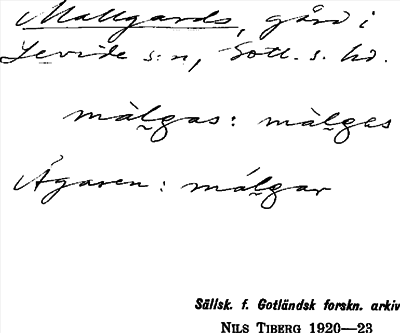 Mallgards, gård i
Levide s:n, Gotl. s. hd.
màl̰gas : màl̰ges
Ägaren : mál̰gar
Sällsk. f. Gotländsk forskn. arkiv
NILS TIBERG 1920—23